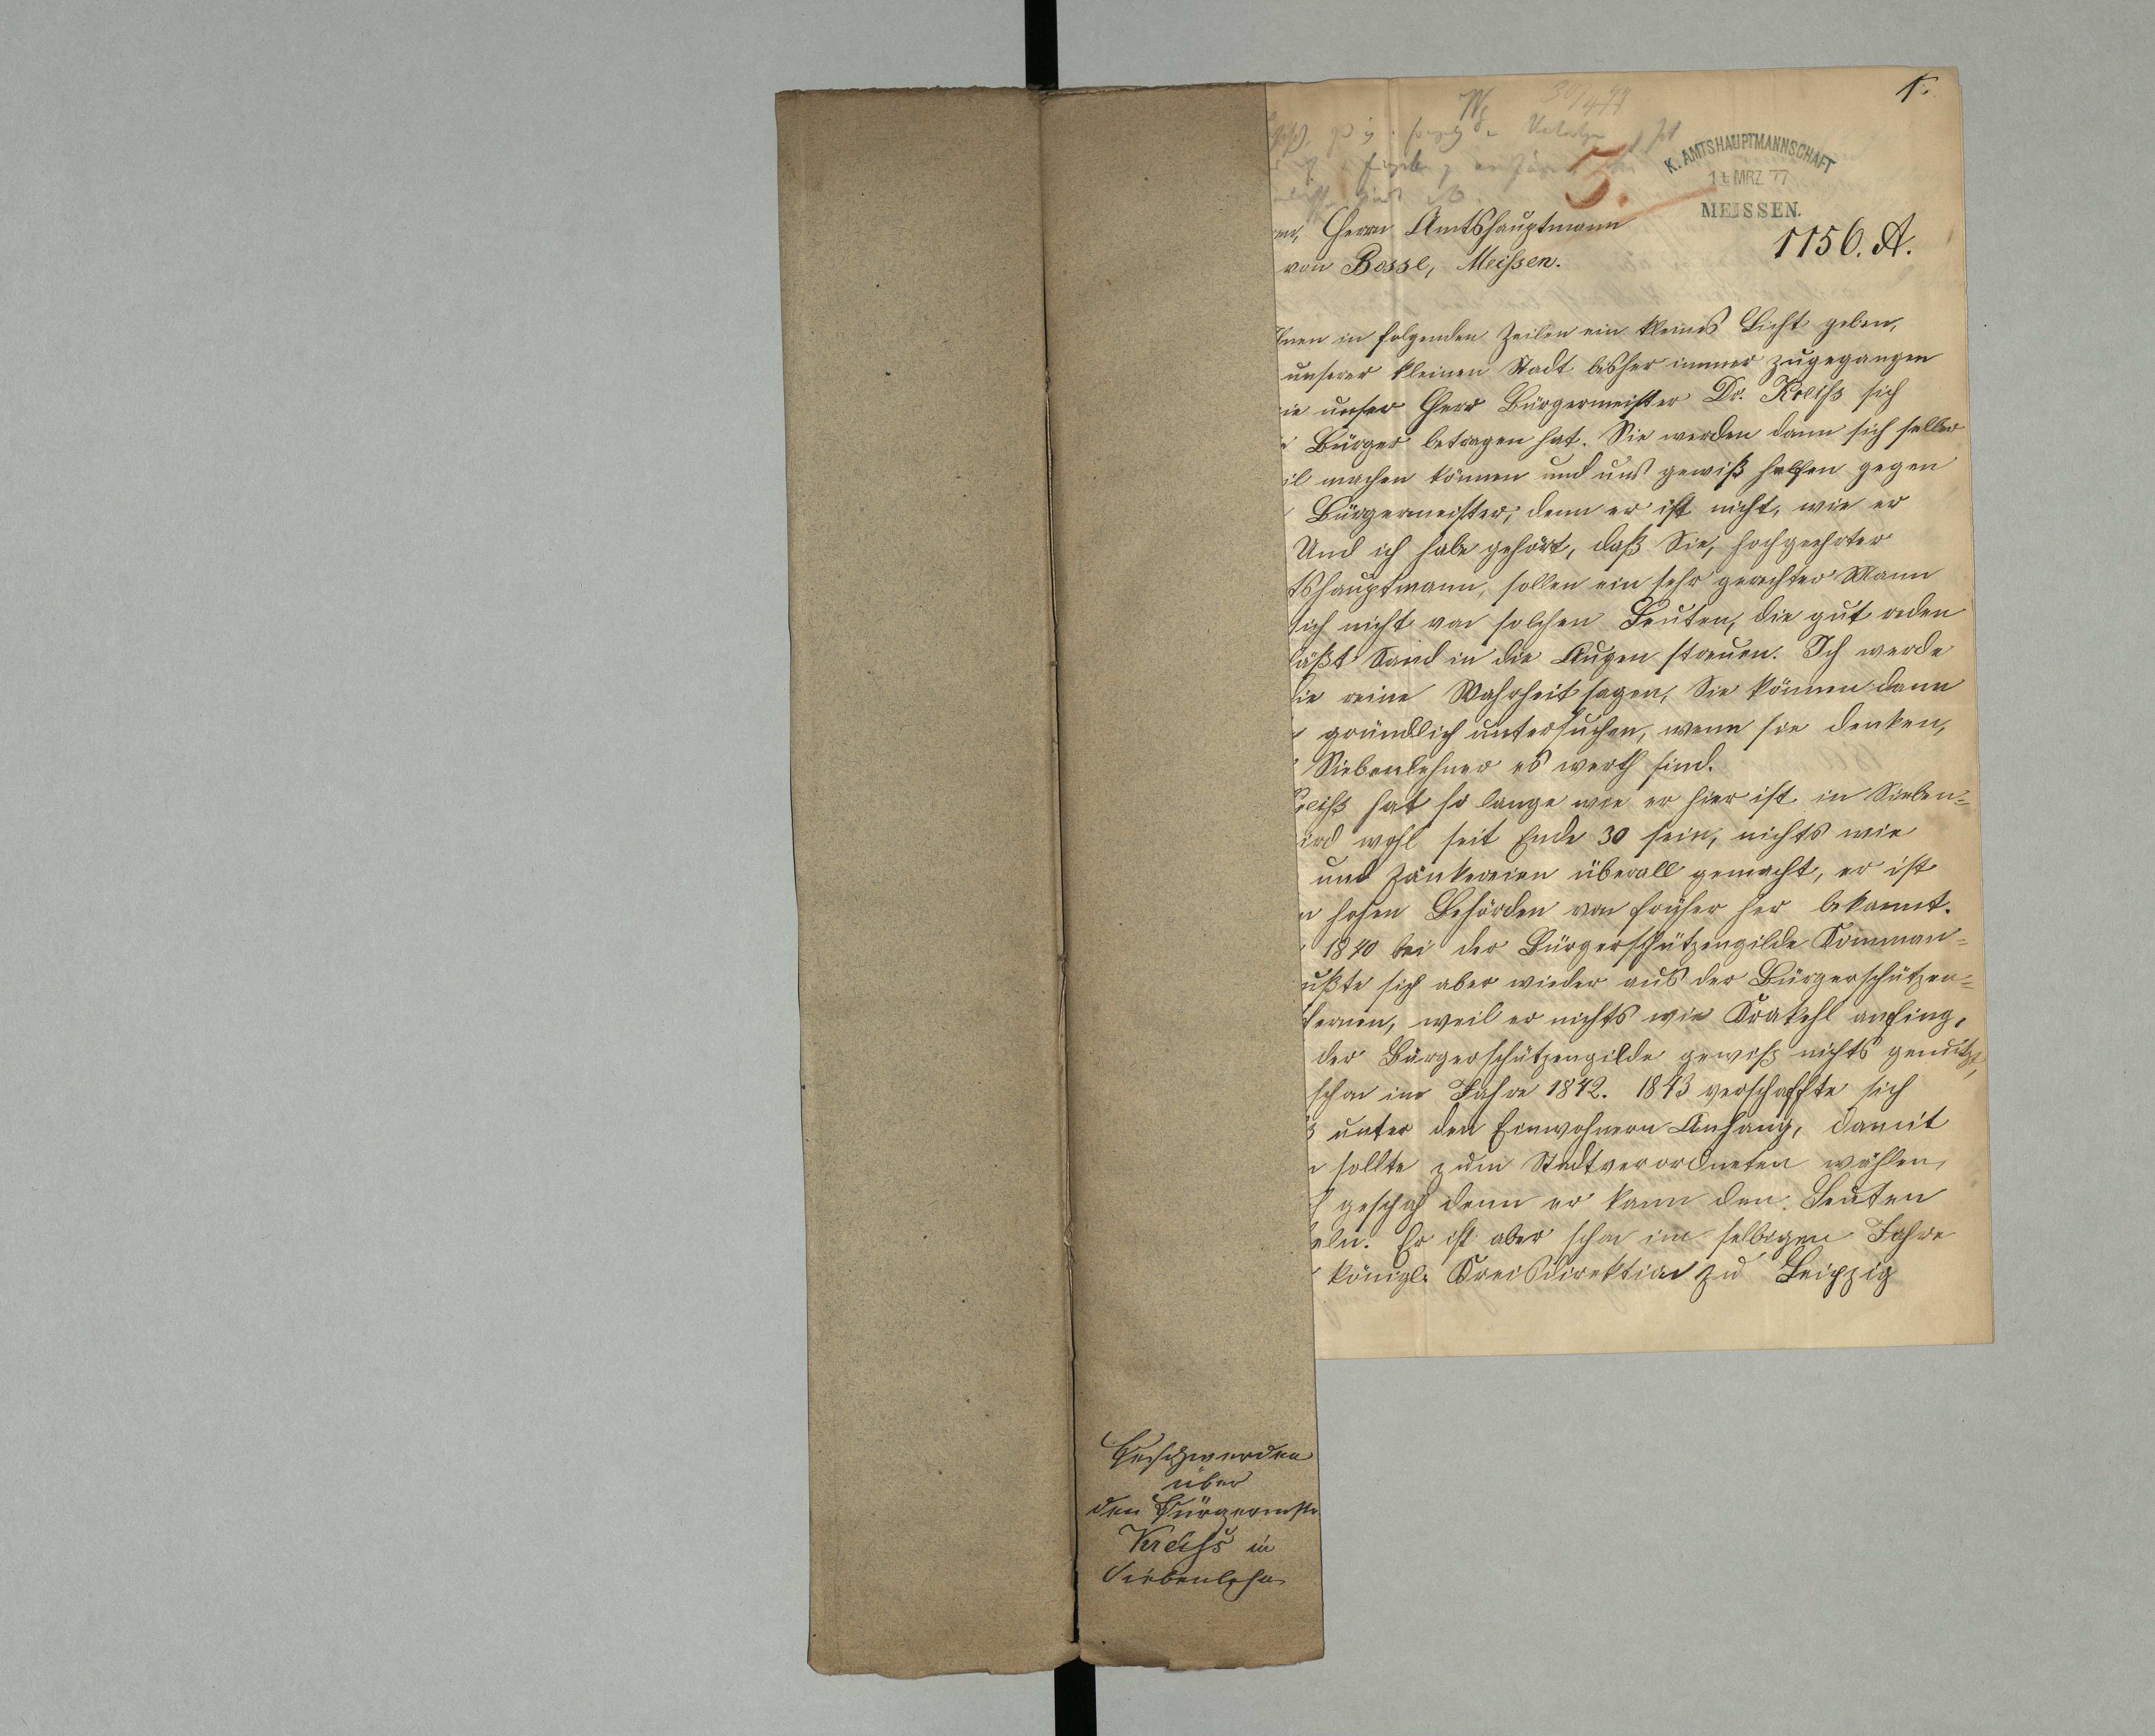 1.
K. AMTSHAUPTMANNSCHAFT
MRZ. 77
MEISSEN.
5.
1156. A.
Herrn Amtshauptmann
von Bosse, Meißen.
in folgenden Zeilen ein kleines Licht geben,
unserer kleinen Stadt bisher immer zugegangen
unser Herr Bürgermeister Dr. Kreiß sich
Bürger betragen hat. Sie werden dann sich selber
machen können und uns gewiß helfen gegen
Bürgermeister, denn er ist nicht, wie er
Und ich habe gehört, daß Sie, hochgeehrter
tshauptmann, sollen ein sehr gerechter Mann
sich nicht von solchen Leuten, die gut reden
läßt Sand in die Augen streuen. Ich werde
die reine Wahrheit sagen, Sie können dann
gründlich untersuchen, wenn sie denken,
Siebenlehner es werth sind.
reiß hat so lange wie er hier ist in Sieben=
ird wohl seit Ende 30 sein, nichts wie
und Zänkereien überall gemacht, er ist
n hohen Behörden von früher her bekannt.
1840 bei der Bürgerschützengilde Komman=
ußte sich aber wieder aus der Bürgerschützen=
fernen, weil er nichts wie Krakehl anfing,
der Bürgerschützengilde gewiß nichts genützt,
schon im Jahre 1842. 1843 verschaffte sich
ß unter den Einwohnern Anhang, damit
n sollte zum Stadtverordneten wählen,
geschah denn er kann den Leuten
eln. Er ist aber schon im selbigen Jahre
königl. Kreisdirektion zu Leipzig
Beschwerden
über
den Bürgermstr
Kreiß in
Siebenlehn